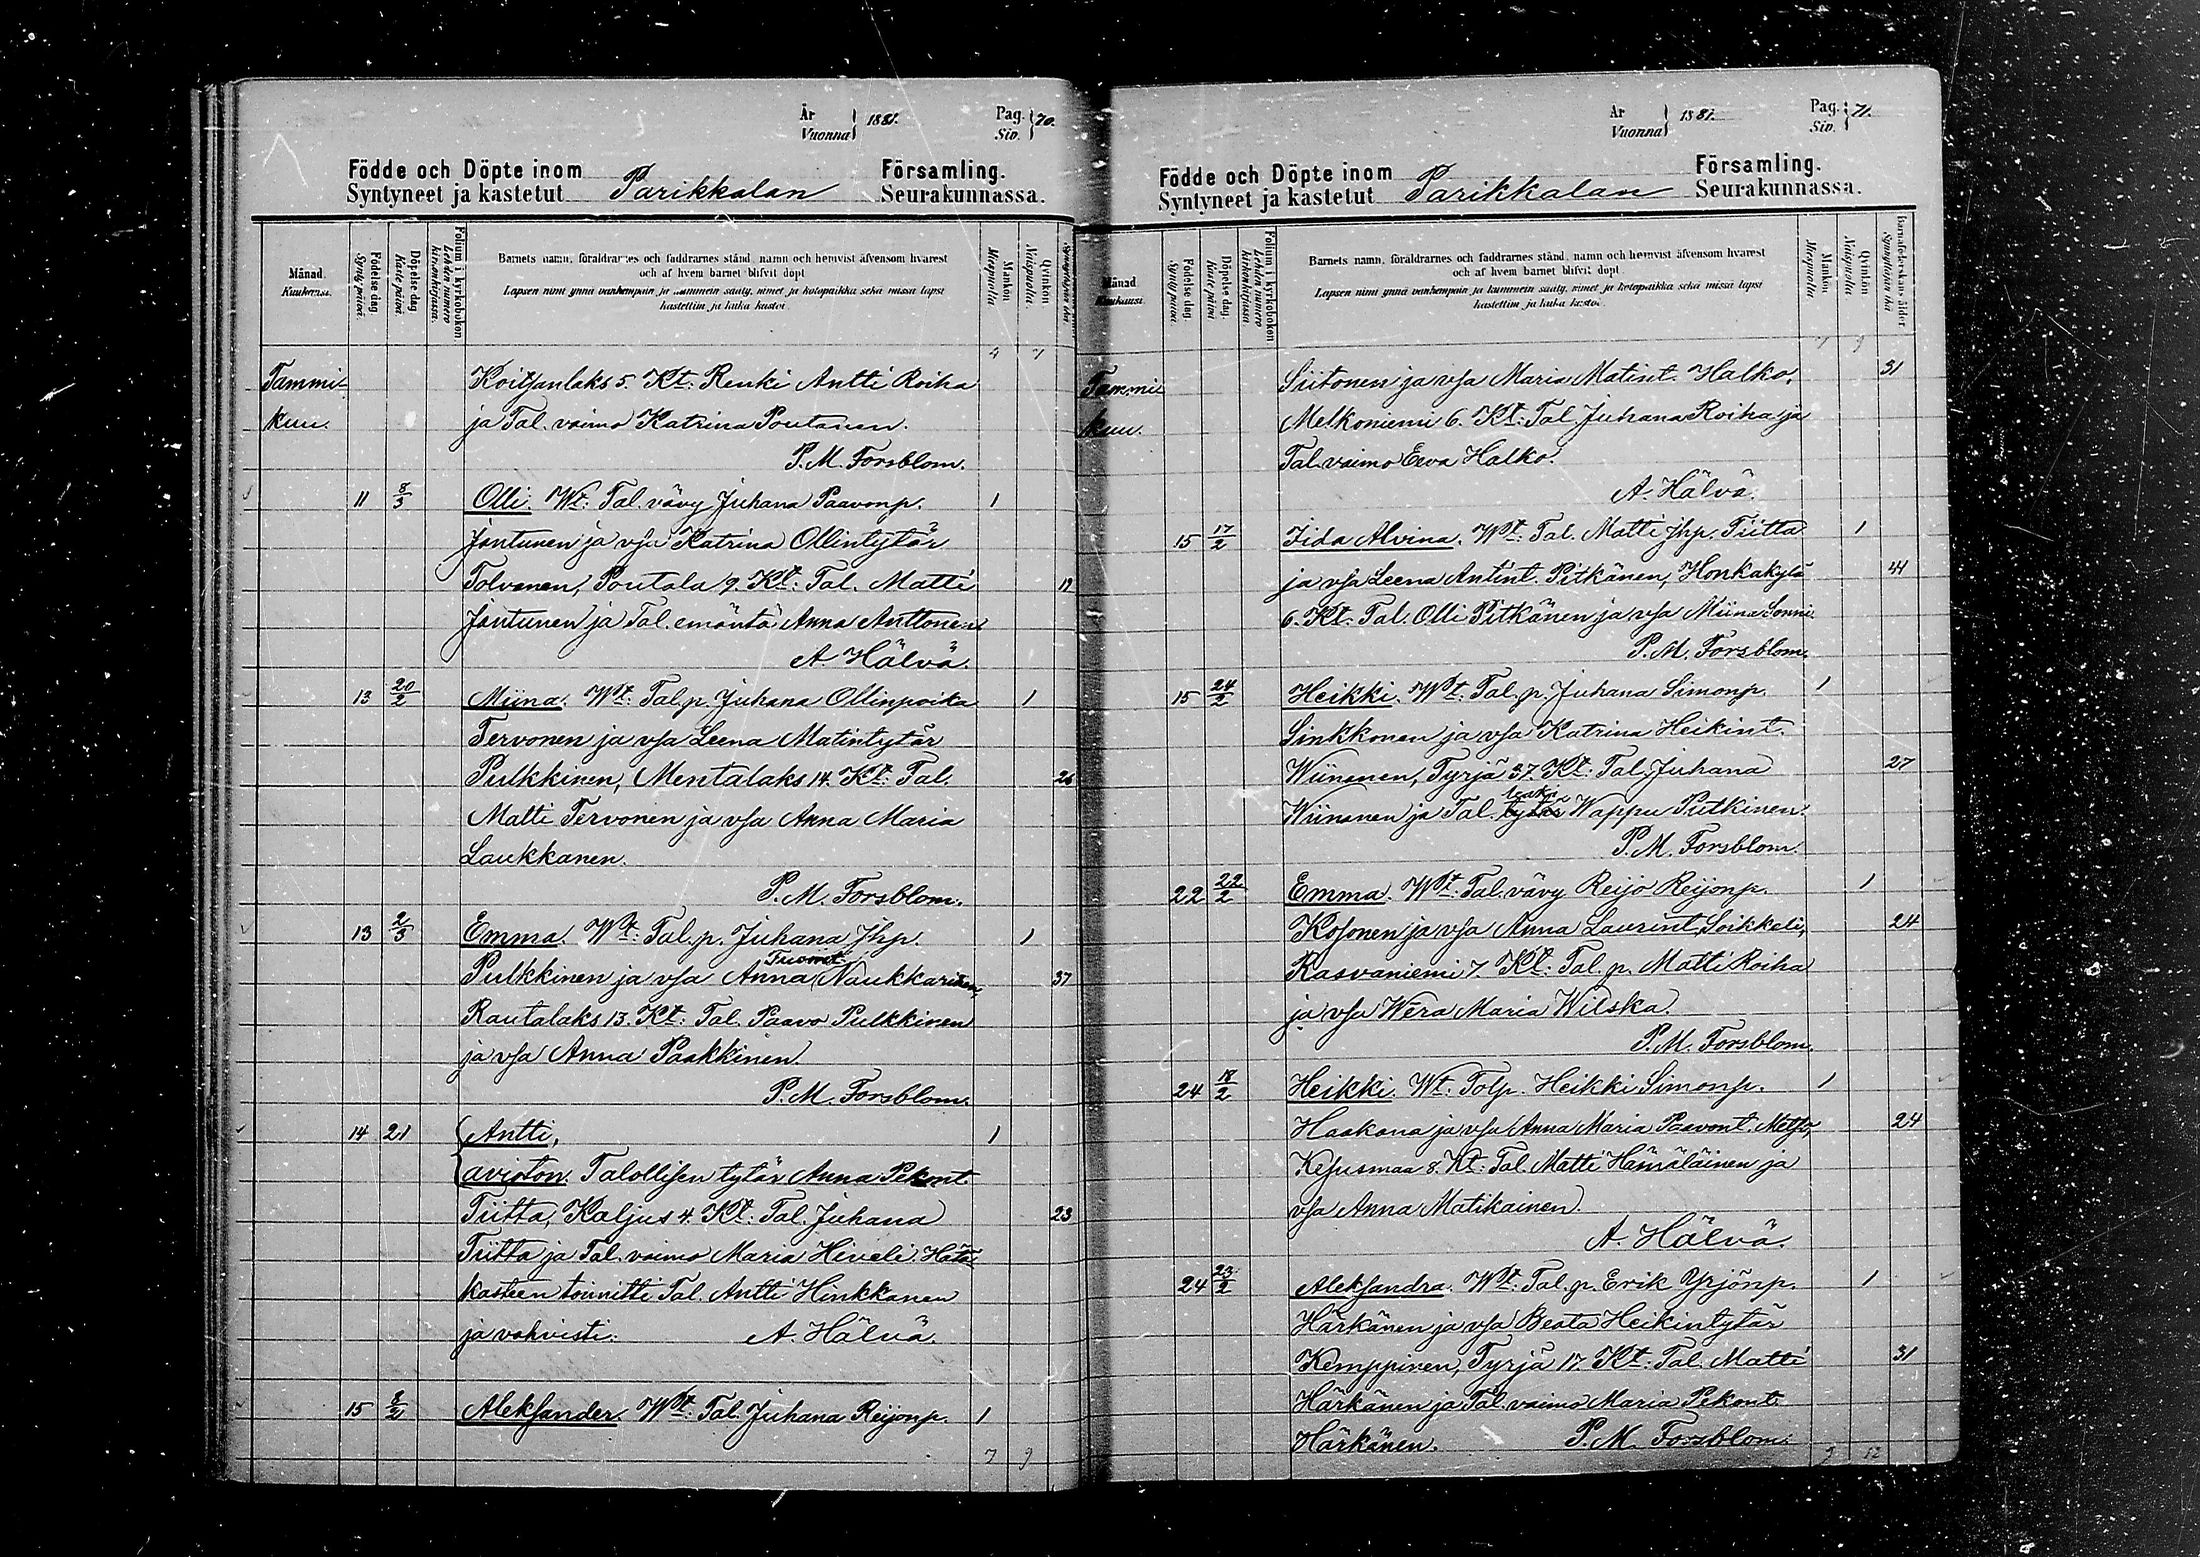 År
Vuonna } 1881.
Pag.
Siv. } 70.
Födde och Döpte inom Parikkalan Församling.
Syntyneet ja kastetut Seurakunnassa.
Månad.
Kuukausi.
Födelse dag.
Synty päivä.
Döpelse dag.
Kaste päivä.
Folium i kyrkobokon
Lehden numero kirkonkirjassa.
Barnets namn, föräldrarnes och faddrarnes stånd, namn och hemvist äfvensom hvarest
och af hvem barnet blifvit döpt
Lapsen nimi ynnä vanhempain ja kummein sääty, nimet ja kotopaikka sekä missä lapsi
kastettiin ja kuka kastoi.
Mankön
Miespuolia
Qvinkön
Naispuolia.
4 7
Tammi- Koitsanlaks 5. Kt: Renki Antti Roiha
kuu. ja Tal. vaimo Katrina Poutanen.
P. M. Forsblom.
11 8/3 Olli. Wt: Tal. vävy Juhana Paavonp. 1
Jantunen ja vsa Katrina Ollintytär
Tolvanen, Poutala 9. Kt: Tal. Matti 19
Jantunen ja Tal. emäntä Anna Anttonen
A Hälvä.
13 20/2 Miina. Wt: Tal. p. Juhana Ollinpoika 1
Tervonen ja vsa Leena Matintytär
Pulkkinen, Mentalaks 14. Kt: Tal. 26
Matti Tervonen ja vsa Anna Maria
Laukkanen.
P. M. Forsblom.
13 2/3 Emma. Wt: Tal. p. Juhana Jhp. 1
Tuomt.
Pulkkinen ja vsa Anna Naukkarinen, 37
Rautalaks 13. Kt: Tal. Paavo Pulkkinen
ja vsa Anna Paakkinen.
P. M. Forsblom.
14 21 Antti, 1
avioton. Talollisen tytär Anna Pekont.
Tiitta, Kaljus 4. Kt: Tal. Juhana 23
Tiitta ja Tal. vaimo Maria Hiveli. Hätä
kasteen toimitti Tal. Antti Hinkkanen
ja vahvisti. A. Hälvä.
15 8/2 Aleksander. Wt: Tal. Juhana Reijonp. 1
7 9
År
Vuonna } 1881.
Pag.
Siv. } 71.
Födde och Döpte inom Parikkalan Församling.
Syntyneet ja kastetut Seurakunnassa.
Månad.
Kuukausi.
Födelse dag.
Synty päivä
Döpelse dag.
Kaste päivä
Folium i kyrkobokon
Lehden numero kirkonkirjassa
Barnets namn, föräldrarnes och faddrarnes stånd, namn och hemvist äfvensom hvarest
och af hvem barnet blifvit döpt
Lapsen nimi ynnä vanhempain ja kummein sääty, nimet ja kotopaikka sekä missä lapsi
kastettiin ja kuka kastoi.
Mankön
Miespuolia
Qvinkön
Naispuolia
Barnaföderskans ålder
Synnyttäjän ikä
7 9
Tammi- Siitonen ja vsa Maria Matint. Halko, 31
kuu. Melkoniemi 6. Kt: Tal. Juhana Roiha ja
Tal. vaimo Eeva Halko.
A. Hälvä.
15 17/2 Iida Alvina. Wt: Tal. Matti Jhp. Tiitta 1
ja vsa Leena Antint. Pitkänen, Honkakylä 44
6. Kt: Tal. Olli Pitkänen ja vsa Miina Sonni.
P. M. Forsblom.
15 24/2 Heikki. Wt: Tal. p. Juhana Simonp. 1
Sinkkonen ja vsa Katrina Heikint.
Wiinanen, Tyrjä 37. Kt: Tal. Juhana 27
leski
Wiinanen ja Tal. tytär Wappu Putkinen.
P. M. Forsblom.
22 22/2 Emma. Wt: Tal. vävy Reijo Reijonp. 1
Kosonen ja vsa Anna Laurint. Soikkeli, 24
Rasvaniemi 7. Kt: Tal. p. Matti Roiha
ja vsa Wera Maria Wilska.
P. M. Forsblom.
24 18/2 Heikki. Wt: Tolp. Heikki Simonp. 1
Haakana ja vsa Anna Maria Paavont. Metso, 24
Kesusmaa 8. Kt: Tal. Matti Hämäläinen ja
vsa Anna Matikainen.
A. Hälvä.
24 23/2 Aleksandra. Wt: Tal. p. Erik Yrjönp. 1
Härkänen ja vsa Beata Heikintytär
Kemppinen, Tyrjä 17. Kt: Tal. Matti 31
Härkänen ja Tal. vaimo Maria Pekont.
Härkänen. P. M. Forsblom.
9 12